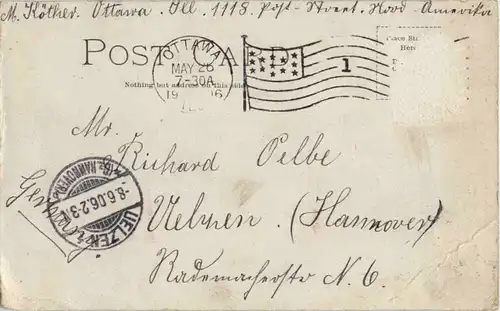 M. Köther. Ottawa. Ill. 1118. Post-Street. Nord-Amerika
POST CARD
OTTAWA
MAY 26
7-30A
19 6
1
Place
Here
Nothing but address on this side
Mr.
Richard Oelbe
Germany
UELZEN
*(BZ. HANNOVER)*
-8.6.06.2-3
Uelzen. (Hannover)
Rademacherstr N. 6.